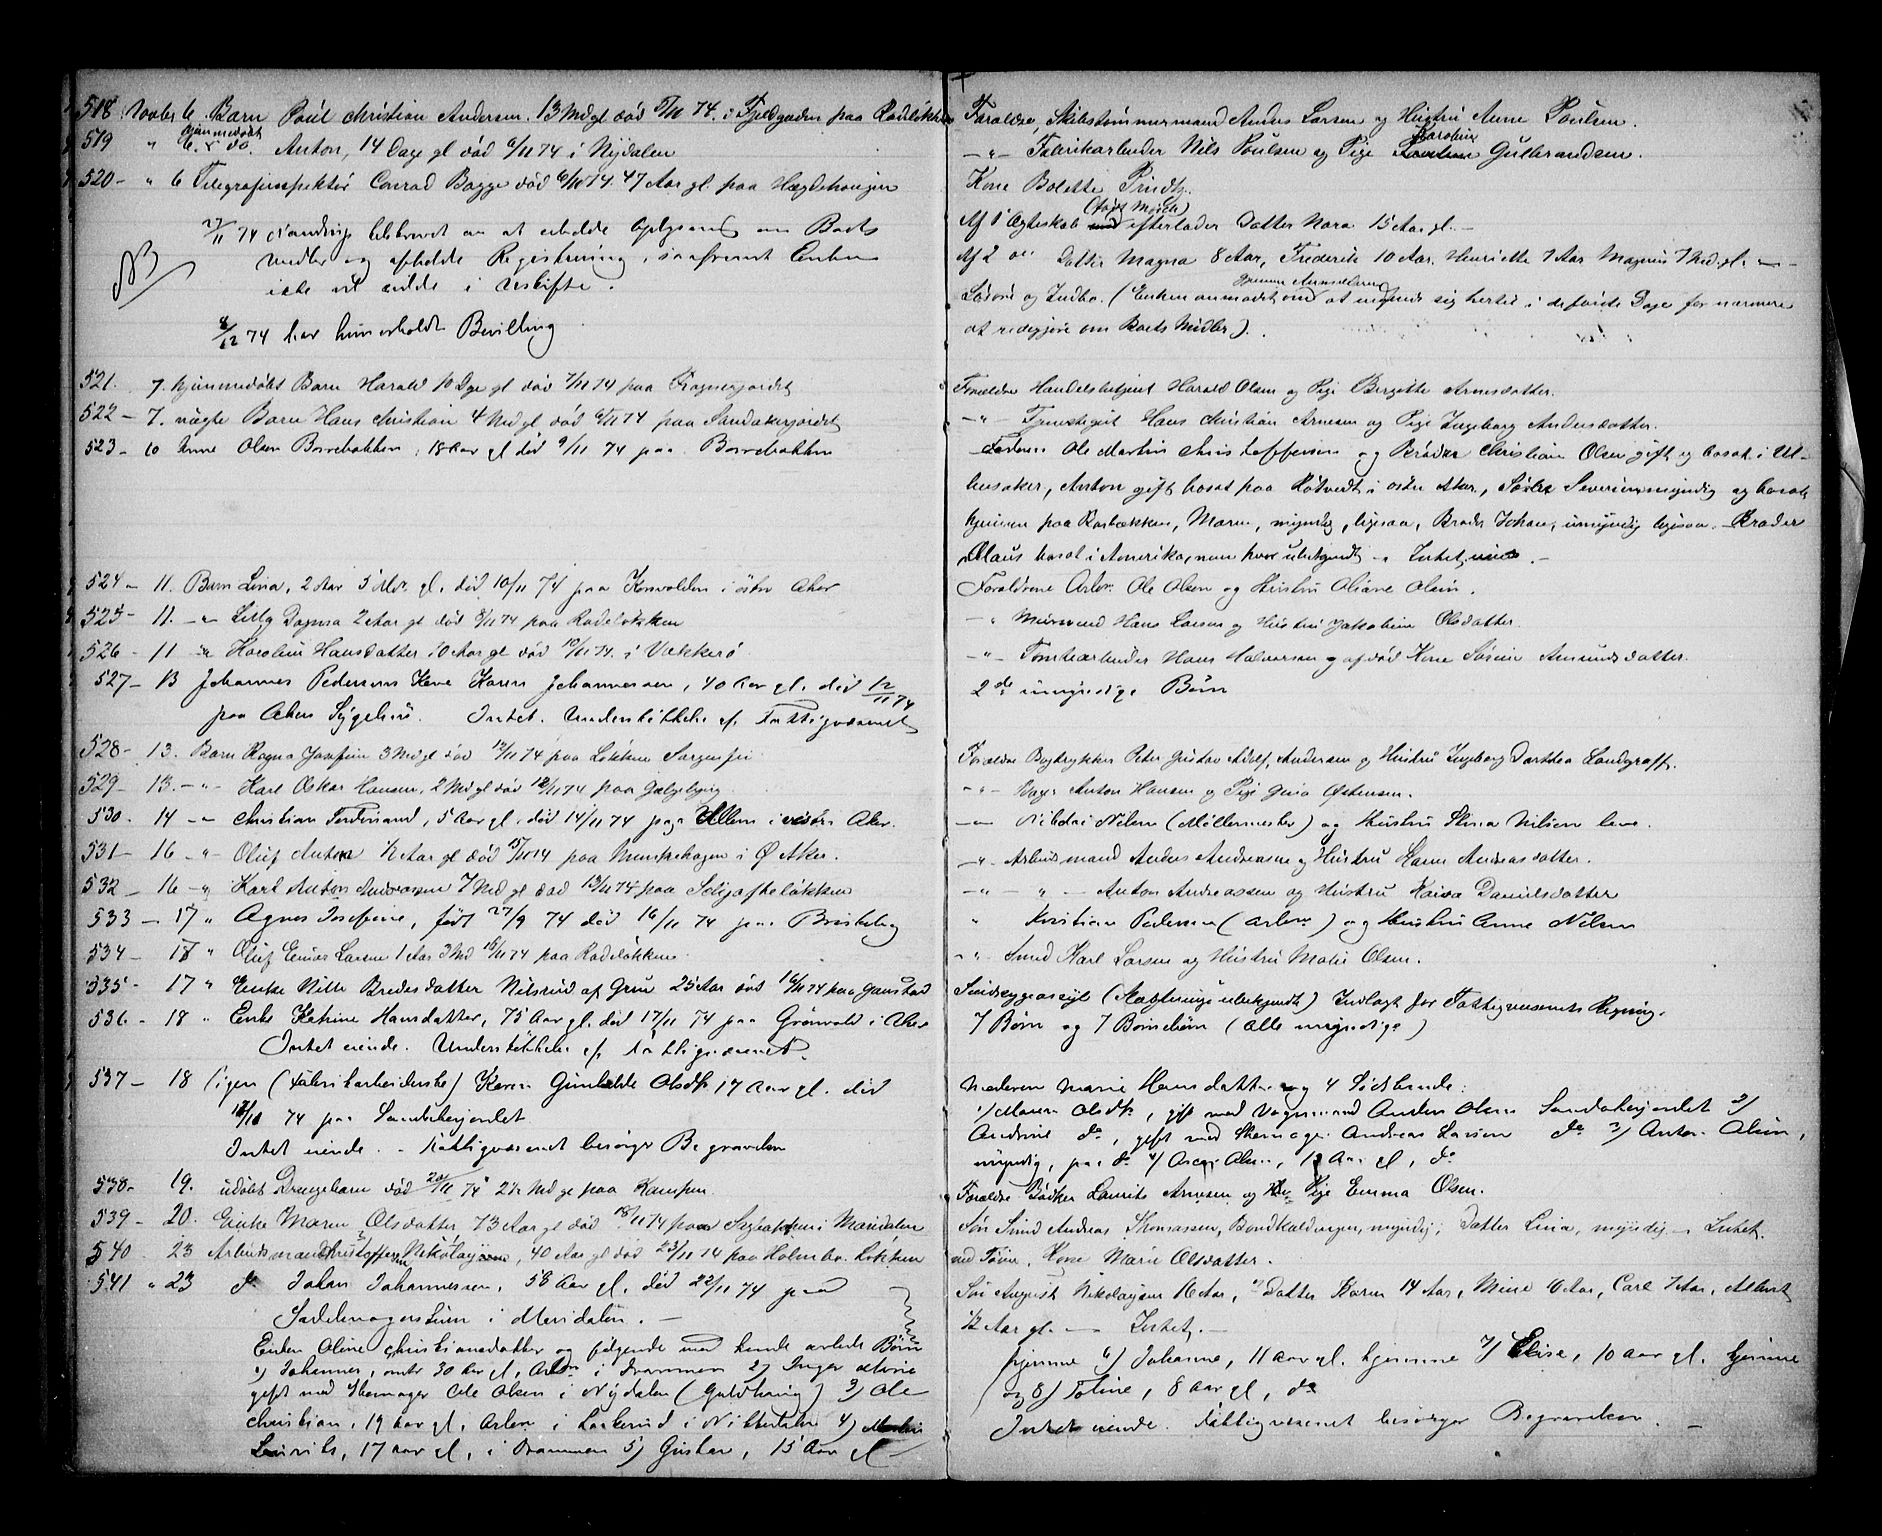 518 Novber 6. Barn Poul Christian Andersen. 13 Mdgl död 5/11 74. i Fjeldgaden paa Rodelökken
hjemmedöbt
519 " 6. " do. Anton, 14 Dage gl död 6/11 74 i Nydalen
520 - " 6 Telegrafinspektör Conrad Bagge död 6/11 74. 47 Aar gl. paa Hægdehaugen
27/11 74 tilskrevet om at erholde Oplysning om Boets
NB Midler og afholde Registrering, saafremt Enken
ikke vil sidde i Uskifte.
8/12 74 har hun erholdt Bevilling
521. 7. hjemmedöbt Barn Harald 10 Dge gl död 7/11 74 paa Frognerjordet
522 - 7. uægte Barn Hans Christian 4 Md gl död 6/11 74 paa Sandakerjordet
523 - 10 Anne Olsen Borrebakken, 18 Aar gl död 9/11 74 paa Borrebakken
524 - 11. Barn Lina, 2 Aar 5 Mdr gl. död 10/11 74 paa Korsvolden i östre Aker
525 - 11. - " Dagma 2 Aar gl död 8/11 74 paa Rodelökken
526 - 11 " Karoline Hansdatter 10 Aar gl död 10/11 74. i Vækkerö
527 - 13 Johannes Pedersens Kone Karen Johannessen, 40 Aar gl. död 12/11 74
paa Akers Sygehus. Intet. Understöttelse af Fattigvæsenet
528 - 13. Barn Ragna Josefine 3 Mdgl död 12/11 74 paa Lökken Sorgenfri
529 - 13. - " - Karl Oskar Hansen, 2 Md gl död 12/11 74 paa Galgeberg
530 - 14 - " Christian Ferdinand, 5 Aar gl. död 14/11 74 paa Ullern i vestre Aker.
531 - 16 - " - Oluf Anton 1/2 Aar gl död 15/11 74 paa Munkehagen i Ø Aker.
532 - 16 - " Karl Anton Andreasen 7 Md gl död 13/11 74 paa Seligaftelökken
533 - 17 " Agnes Josefine, född 27/9 74 död 16/11 74 paa Briskeby
534 - 17 " Oluf Einar Larsen 1 Aar 3 Md 15/11 74 paa Rodelökken
535 - 17 " Enke Nille Bredesdatter Nilsrud af Grue 25 Aar död 16/11 74 paa Gaustad
536 - 18 " Enke Katrine Hansdatter, 75 Aar gl. död 17/11 74 paa Grönvold i Aker
Intet eiende. Understöttelse af Fattigvæsenet.
537 - 18 Pigen (Fabrikarbeiderske) Karen Gunhilde Olsdtr 17 Aar gl. död
17/11 74 paa Sandakerjordet
Intet eiende. - Fattigvæsenet besörger Begravelsen
538 - 19. udöbt Drengebarn död 20/11 74 2 1/2 Md ge paa Kampen.
539 - 20. Enke Maren Olsdatter 73 Aar gl död 18/11 74 paa i Maridalen
540 - 23 Arbeidsmand Kristoffer Nikolaysen, 40 Aar gl död 23/11 74 paa Holmbo Lökken
541 " 23 do Johan Johannessen, 58 Aar gl, död 22/11 74 paa
Sadelmagerstuen i Maridalen. -
Enken Oline Christiansdatter og fölgende med hende avlede Börn
1) Johannes, omtr 30 Aar gl, Arb. i Drammen 2) Inger
gift med Skomager Ole Olsen i Nydalen (Guldhaug) 3) Ole
Christian, 19 Aar gl, Arb. i i Nittedalen 4)
Laurits, 17 Aar gl, i Drammen 5) Gustav, 15 Aar gl -
Forældre, Skibstömmermand Anders Larsen og Hustru Anne Poulsen.
Karoline
- " - Fabrikarbeider Nils Poulsen og Pige Gulbrandsen.
Kone Bolette Prindtz.
(född Mörch)
Af 1' Ægteskab efterlader Datter Nora 15 Aar gl. -
Af 2 do Datter Magna 8 Aar, Frederik 10 Aar. Henriette 7 Aar Magnus 7 Mdgl. -
gjennem Anmelderen
Lösöre og Indbo. (Enken anmodet om at sig hertil i de förste Dage for nærmere
at redegjöre om Boets Midler).
Forældre Handelsbetjent Harald Olsen og Pige Birgitte Arnesdatter.
- " - Tjenestegut Hans Christian Arnesen og Pige Ingeborg Andersdatter.
Faderen Ole Martin Christoffersen og Bröder Christian Olsen gift og bosat i Ul-
lensaker, Anton gift bosat paa Rötvedt i östre Aker, Söster Severine myndig og bosat
hjemme paa Borbakken, Maren, myndig, ligesaa, Broder Johan, umyndig ligesaa. - Broder
Olaus bosat i Amerika, men hvor ubekjendt - Intet -
Forældrene Arbm. Ole Olsen og Hustru Oliane Olsen.
- " Murmand Hans Larsen og Hustru Jakobine Olsdatter.
- " - Tomtearbeider Hans Halvorsen og afdöd Kone Sörine Amundsdatter.
2de umyndige Börn
Forældre Bogtrykker Peter Gustav Adolf Andersen og Hustru Ingeborg Dorthea Landgraff.
- " - Anton Hansen og Pige Østensen.
- " - Nikolai Nilsen (Möllermester) og Hustru Stina Nilsen leve.
- " - Arbeidsmand Anders Andreasen og Hustru Karen Andreasdatter.
- " - " - Anton Andreassen og Hustru Kaisa Danielsdatter
" Kristian Pedersen (Arbm) og Hustru Anne Nilsen
- " - Smed Karl Larsen og Hustru Mathe Olsen.
Sindssygeasyl (Slægtninge ubekjendt) Indlagt for Fattigvæsenets Regning.
7 Börn og 7 Börnebörn (Alle myndige)
Moderen Marie Hansdatter og 4 Södskende:
1/ Maren Olsdtr, gift med Vognmand Anders Olsen Sandakerjordet 2/
Andrine do, gift med Skomager Andreas Larsen do 3/ Anton Olsen,
myndig, paa do 4/ Oscar Olsen, 12 Aar gl, do
Forældre Bödker Laurits Arnesen og Pige Emma Olsen.
Sön Smed Andreas Thomassen, myndig; Datter Lina, myndig - Intet.
Kone Maren Olsdatter.
Sön August Nikolaysen 16 Aar, Datter Karen 14 Aar, Mine 10 Aar, Carl 7 Aar, Albert
1/2 Aar gl. - Intet. -
hjemme 6) Johanne, 11 Aar gl. hjemme 7) Elise, 10 Aar gl. hjemme
og 8) Toline, 8 Aar gl, do
Intet eiende. Fattigvæsenet besörger Begravelsen. -